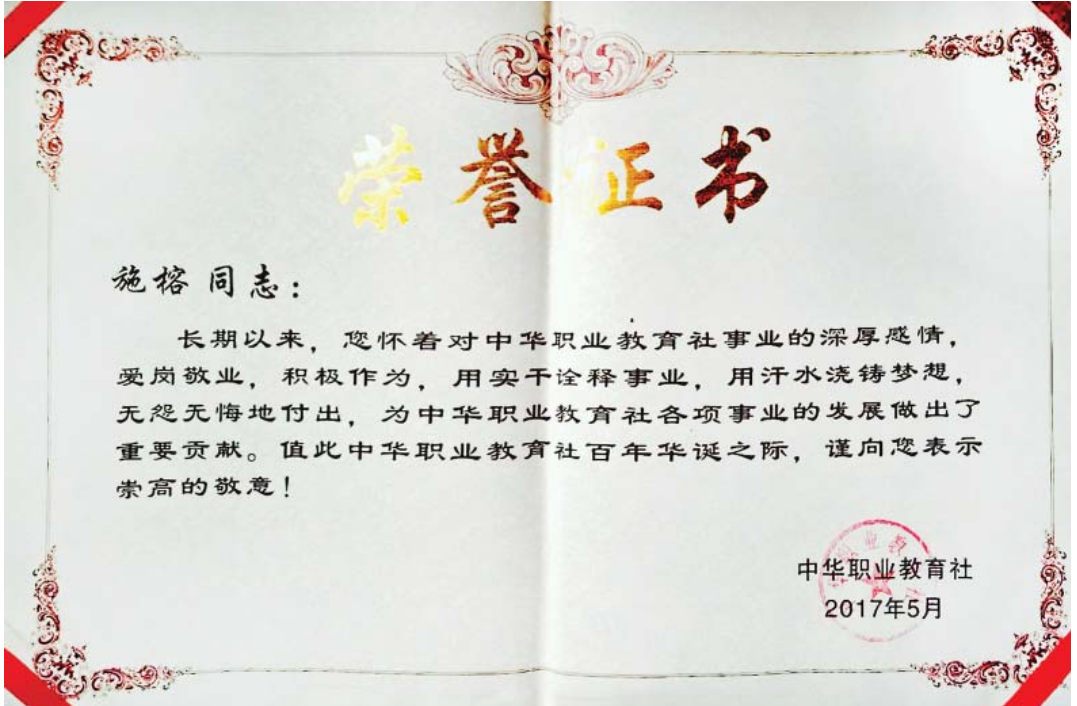 荣誉证书
施榕 同志：
长期以来，您怀着对中华职业教育社事业的深厚感情，
爱岗敬业，积极作为，用实干诠释事业，用汗水浇铸梦想，
无怨无悔地付出，为中华职业教育社各项事业的发展做出了
重要贡献。值此中华职业教育社百年华诞之际，谨向您表示
崇高的敬意！
中华职业教育社
2017年5月